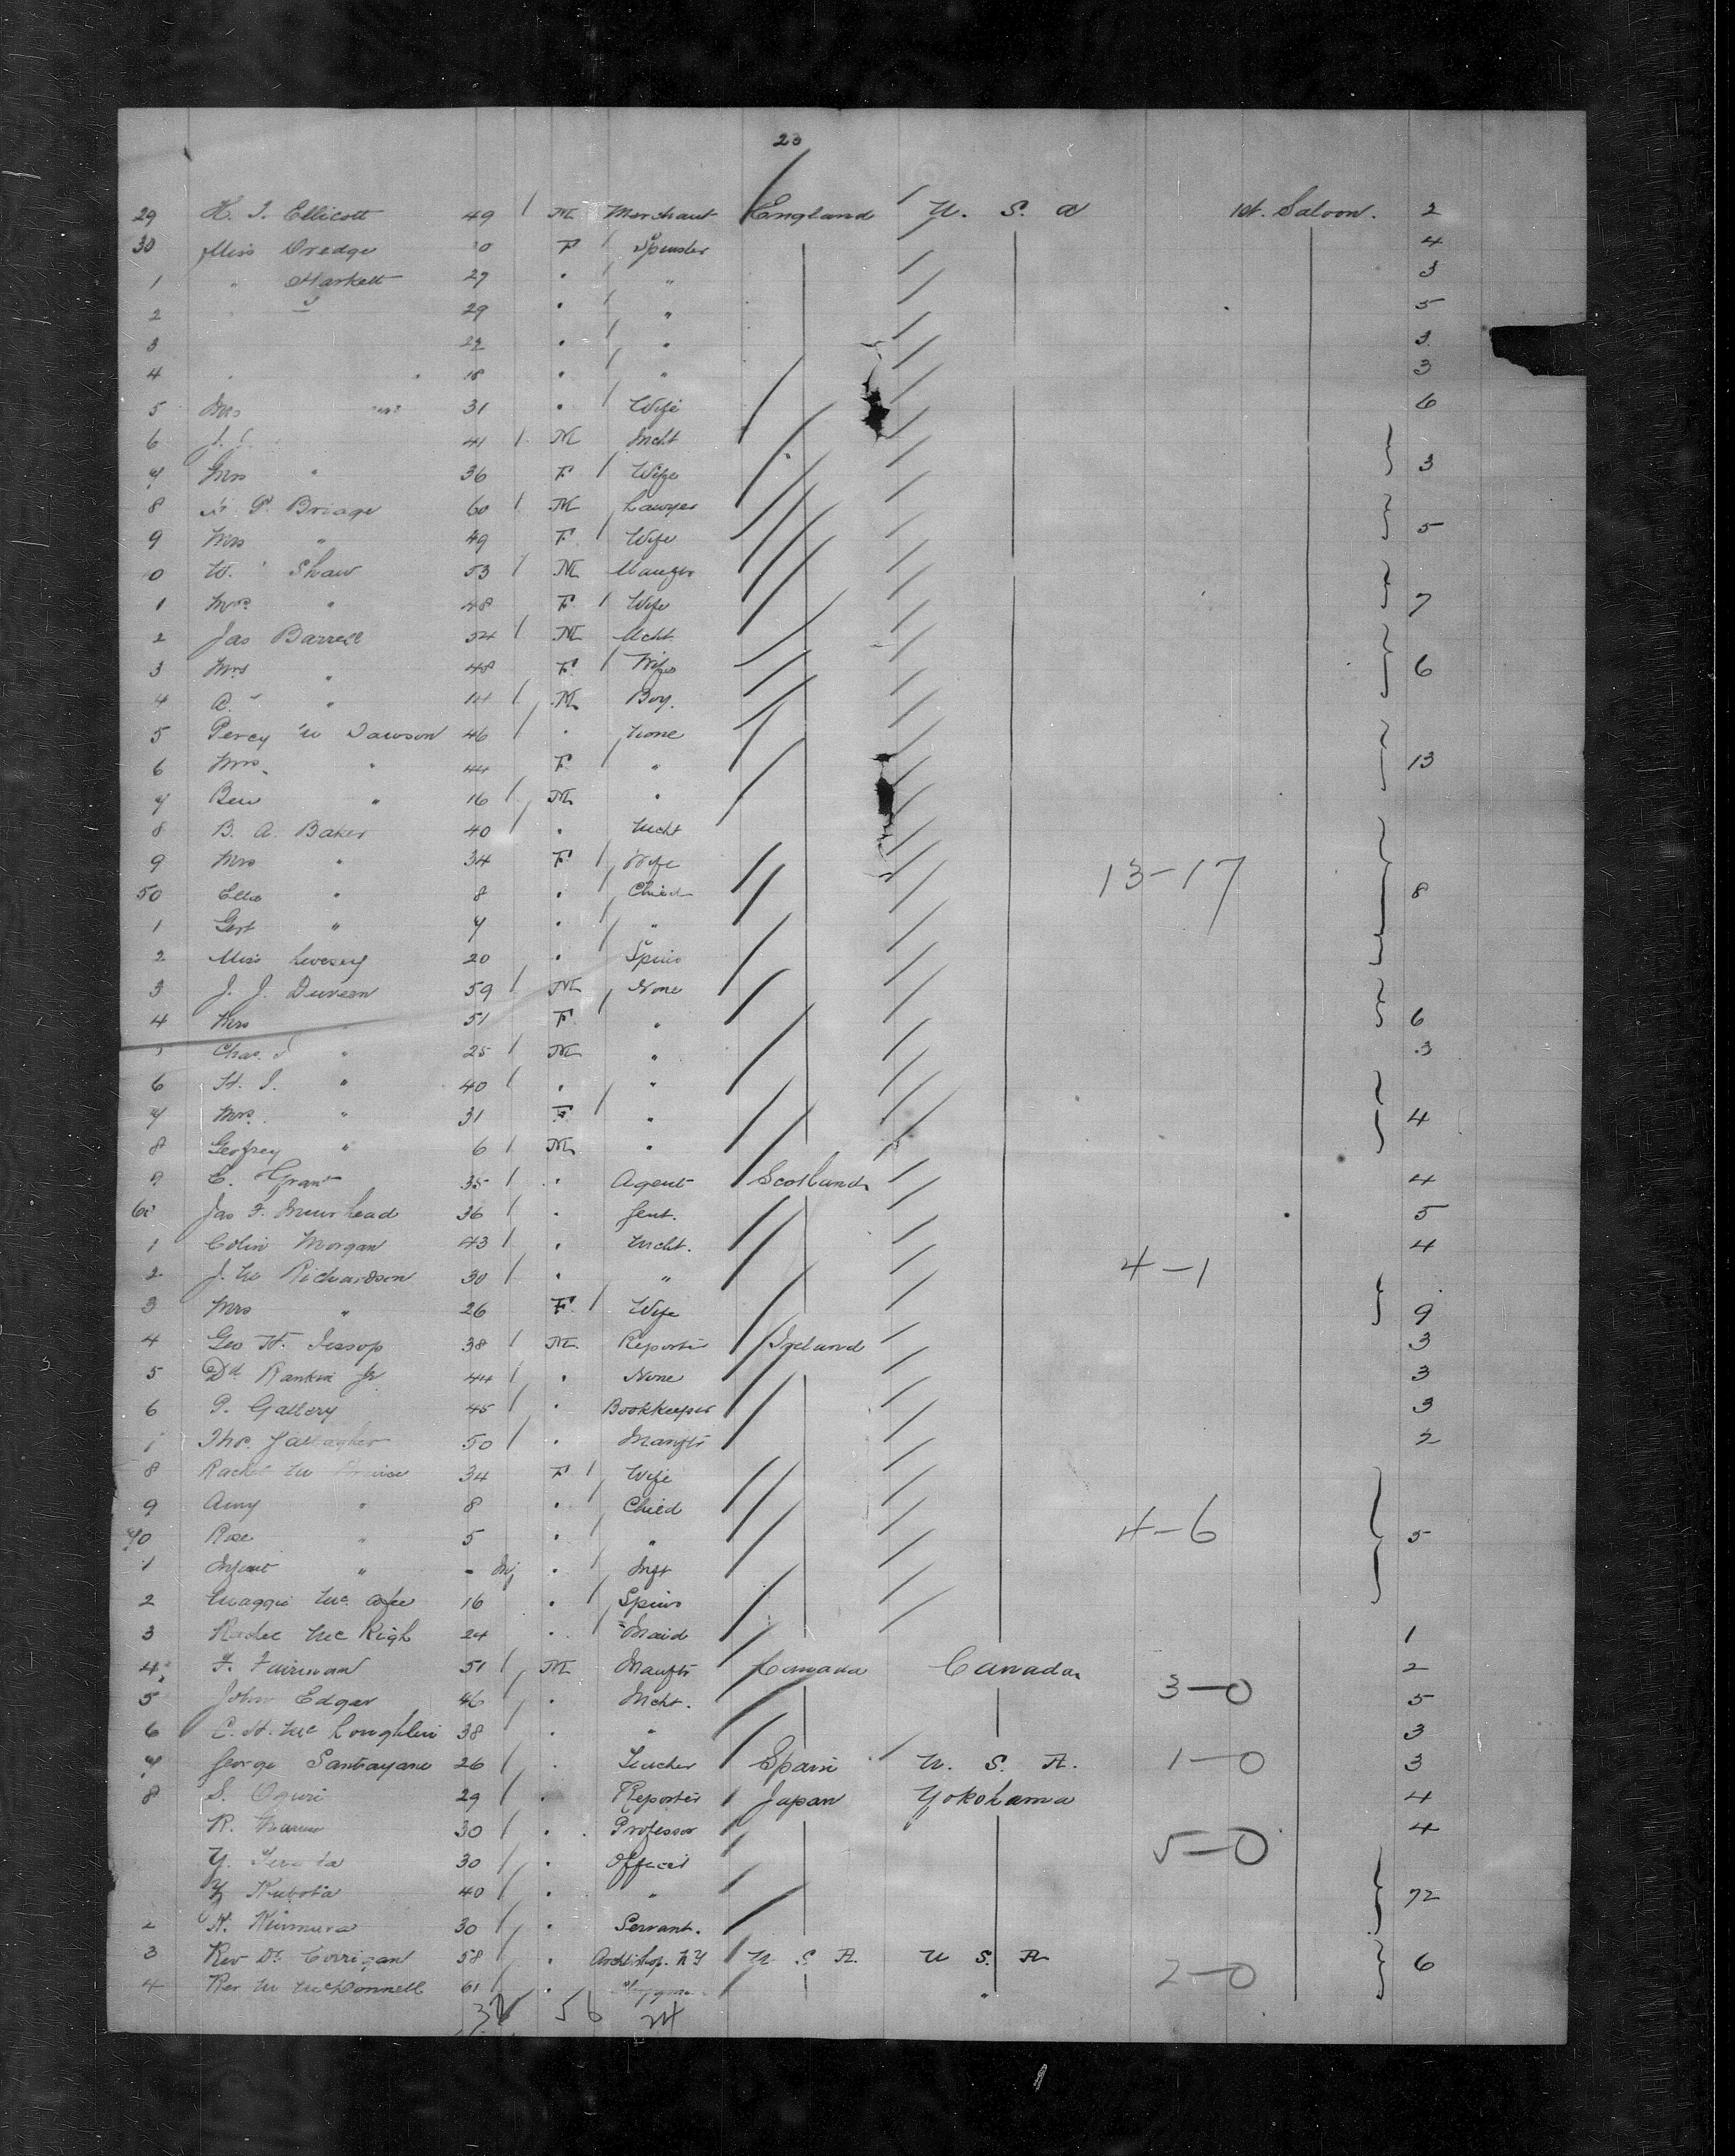 20
29 H. J. Ellicott 49 / M Merchant England U. S. A 1st. Saloon. 2
30 Miss Dredge F / Spinster 4
1 " Harkett 27 " / " 3
2 " 29 " / " 5
3 22 " / " 3
4 18 " / " 3
5 Mrs 31 " / Wife 6
6 J. 41 / M Mcht
7 Mrs " 36 F / Wife 3
8 P. Bridge 60 / M Lawyer
9 Mrs " 49 F / Wife 5
0 W. Shaw 53 / M Manftr
1 Mrs " 48 F / Wife 7
2 Jas Barrell 54 / M Mcht
3 Mrs " 48 F / Wife 6
4 A. " 14 / M Boy.
5 Percy W Dawson 46 / " None
6 Mrs. " 44 F / " 13
7 Ben " 16 / M "
8 B. A. Baker 40 / " Mcht
9 Mrs " 34 F / Wife 13-17
50 Ella " 8 " / Child 8
1 Gert " 7 " / "
2 Miss Livesey 20 " / Spins
3 J. J. Duveen 59 / M None
4 Mrs 51 F / " 6
Chas. " 25 / M " 3
6 H. J. " 40 / " "
7 Mrs. " 31 F / " 4
8 Geofrey " 6 / M "
9 C. Grant 35 / " Agent Scotland 4
60 Jas F. Muirhead 36 / " Gent. 5
1 Colin Morgan 43 / " Mcht. 4
2 J. W Richardson 30 / " " 4-1
3 Mrs " 26 F / Wife 9
4 Geo H. Jessop 38 / M Reporter Ireland 3
5 Dd Rankin Jr 44 / " None 3
6 P. Gallery 45 / " Bookkeeper 3
Thos. Gallagher 50 / " Manftr 2
8 Rachel M 34 F / Wife
9 Amy " 8 " / Child
70 Rose " 5 " / " 4-6 5
1 Infant " - Inf " / Inft
2 Maggie Mc Afee 16 " / Spins
3 Mc Righ 24 " / Maid 1
4 F. Fairman 51 / M Manftr Canada Canada 2
5 John Edgar 46 / " Mcht. 3-0 5
6 C. H. Mc Loughlin 38 / " " 3
7 George Santayana 26 / " Teacher Spain U. S. A. 1-0 3
8 S. Oguri 29 / " Reporter Japan Yokohama 4
R. 30 / " Professor " 4
Y. 30 / " Official 5-0
Y Kubota 40 / " " 72
2 K. Kimura 30 / " Servant.
3 Rev Dr Corrigan 58 / " Archbishop. N Y U. S. A. U S. A 6
4 Rev M McDonnell 61 / " " 2-0
32 56 24